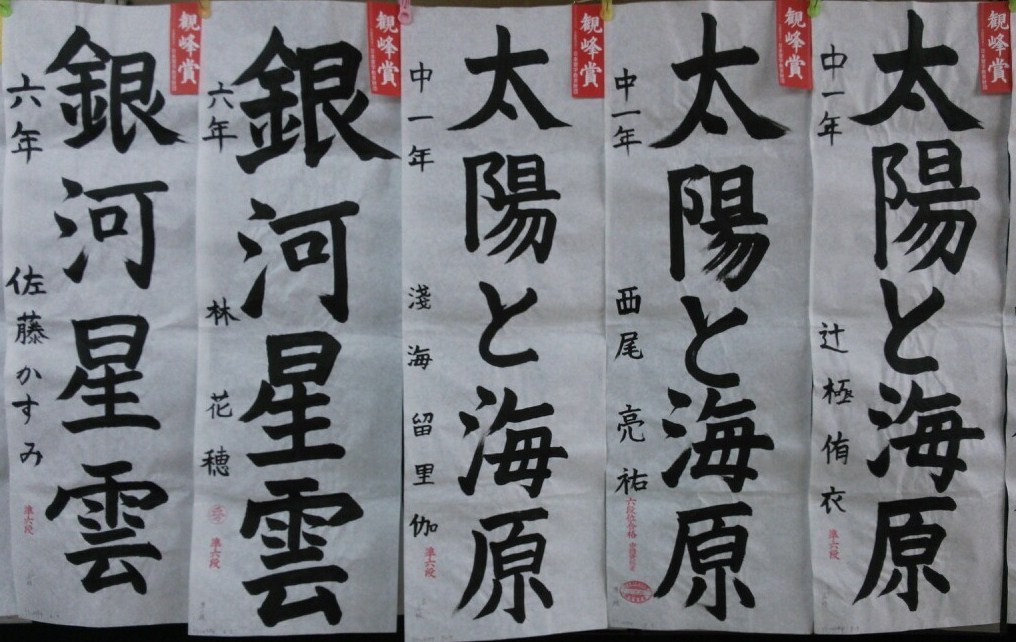 観峰賞
中一年
辻極侑衣
太陽と海原
準六段
観峰賞
中一年
西尾亮祐
太陽と海原
観峰賞
中一年
淺海留里伽
太陽と海原
準六段
観峰賞
六年
林花穂
銀河星雲
準六段
観峰賞
六年
佐藤かすみ
銀河星雲
準六段